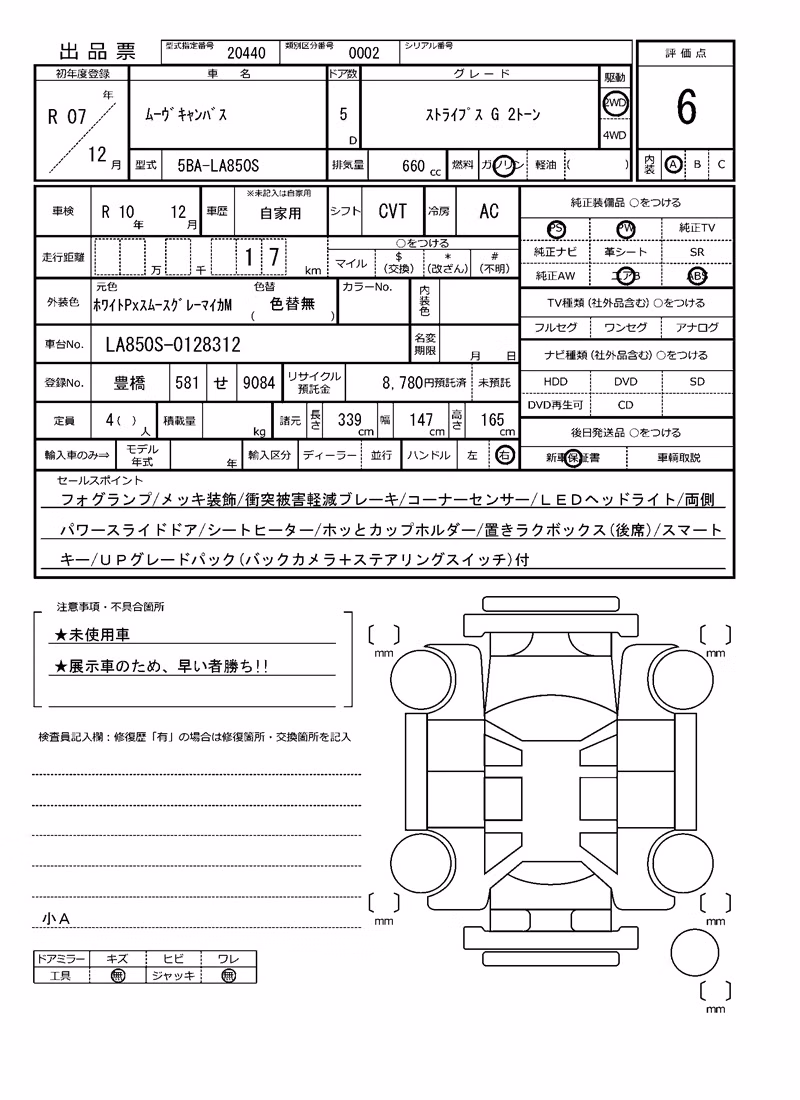 出品票 型式指定番号 20440 類別区分番号 0002 シリアル番号
評価点
初年度登録 車名 ドア数 グレード 駆動
R 07 年 12 月 ムーヴキャンバス 5 D ストライプス G 2トーン 2WD 4WD
6
型式 5BA-LA850S 排気量 660 cc 燃料 ガソリン 軽油 ( )
内装 A B C
車検 R 10 年 12 月 車歴 ※未記入は自家用 自家用 シフト CVT 冷房 AC
純正装備品 ○をつける
PS PW 純正TV
純正ナビ 革シート SR
純正AW エアB ABS
走行距離 万 千 1 7 km
○をつける
マイル $(交換) *(改ざん) #(不明)
外装色 元色 ホワイトPxスムースグレーマイカM 色替 ( 色替無 ) カラーNo. 内装色
TV種類(社外品含む)○をつける
フルセグ ワンセグ アナログ
車台No. LA850S-0128312 名変期限 月 日
ナビ種類(社外品含む)○をつける
HDD DVD SD
DVD再生可 CD
登録No. 豊橋 581 せ 9084 リサイクル預託金 8,780円預託済 未預託
定員 4( ) 人 積載量 kg 諸元 長さ 339 cm 幅 147 cm 高さ 165 cm
後日発送品 ○をつける
新車保証書 車輌取説
輸入車のみ⇒ モデル年式 年 輸入区分 ディーラー 並行 ハンドル 左 右
セールスポイント
フォグランプ/メッキ装飾/衝突被害軽減ブレーキ/コーナーセンサー/ＬＥＤヘッドライト/両側
パワースライドドア/シートヒーター/ホッとカップホルダー/置きラクボックス(後席)/スマート
キー/ＵＰグレードパック(バックカメラ＋ステアリングスイッチ)付
注意事項・不具合箇所
★未使用車
★展示車のため、早い者勝ち!!
検査員記入欄：修復歴「有」の場合は修復箇所・交換箇所を記入
小Ａ
ドアミラー キズ ヒビ ワレ
工具 無 ジャッキ 無
mm mm
mm mm
mm